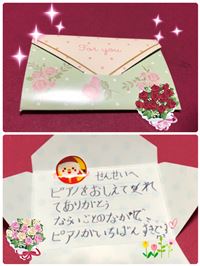 For you
せんせいへ
ピアノをおしえてくれ
てありがとう
ならいごとのなかで、
ピアノがいちばんすきです